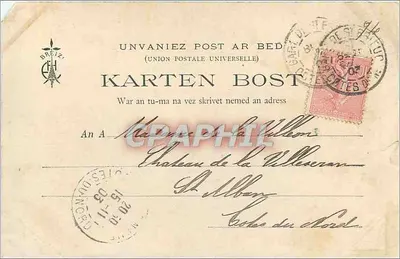 BREIZ
UNVANIEZ POST AR BED
(UNION POSTALE UNIVERSELLE)
KARTEN BOST
War an tu-ma na vez skrivet nemed an adress
An A Marquise de la Villéon
Chateau de la Villeseran
St Alban
Cotes du Nord
CPAPHIL
20-30
15-11
03